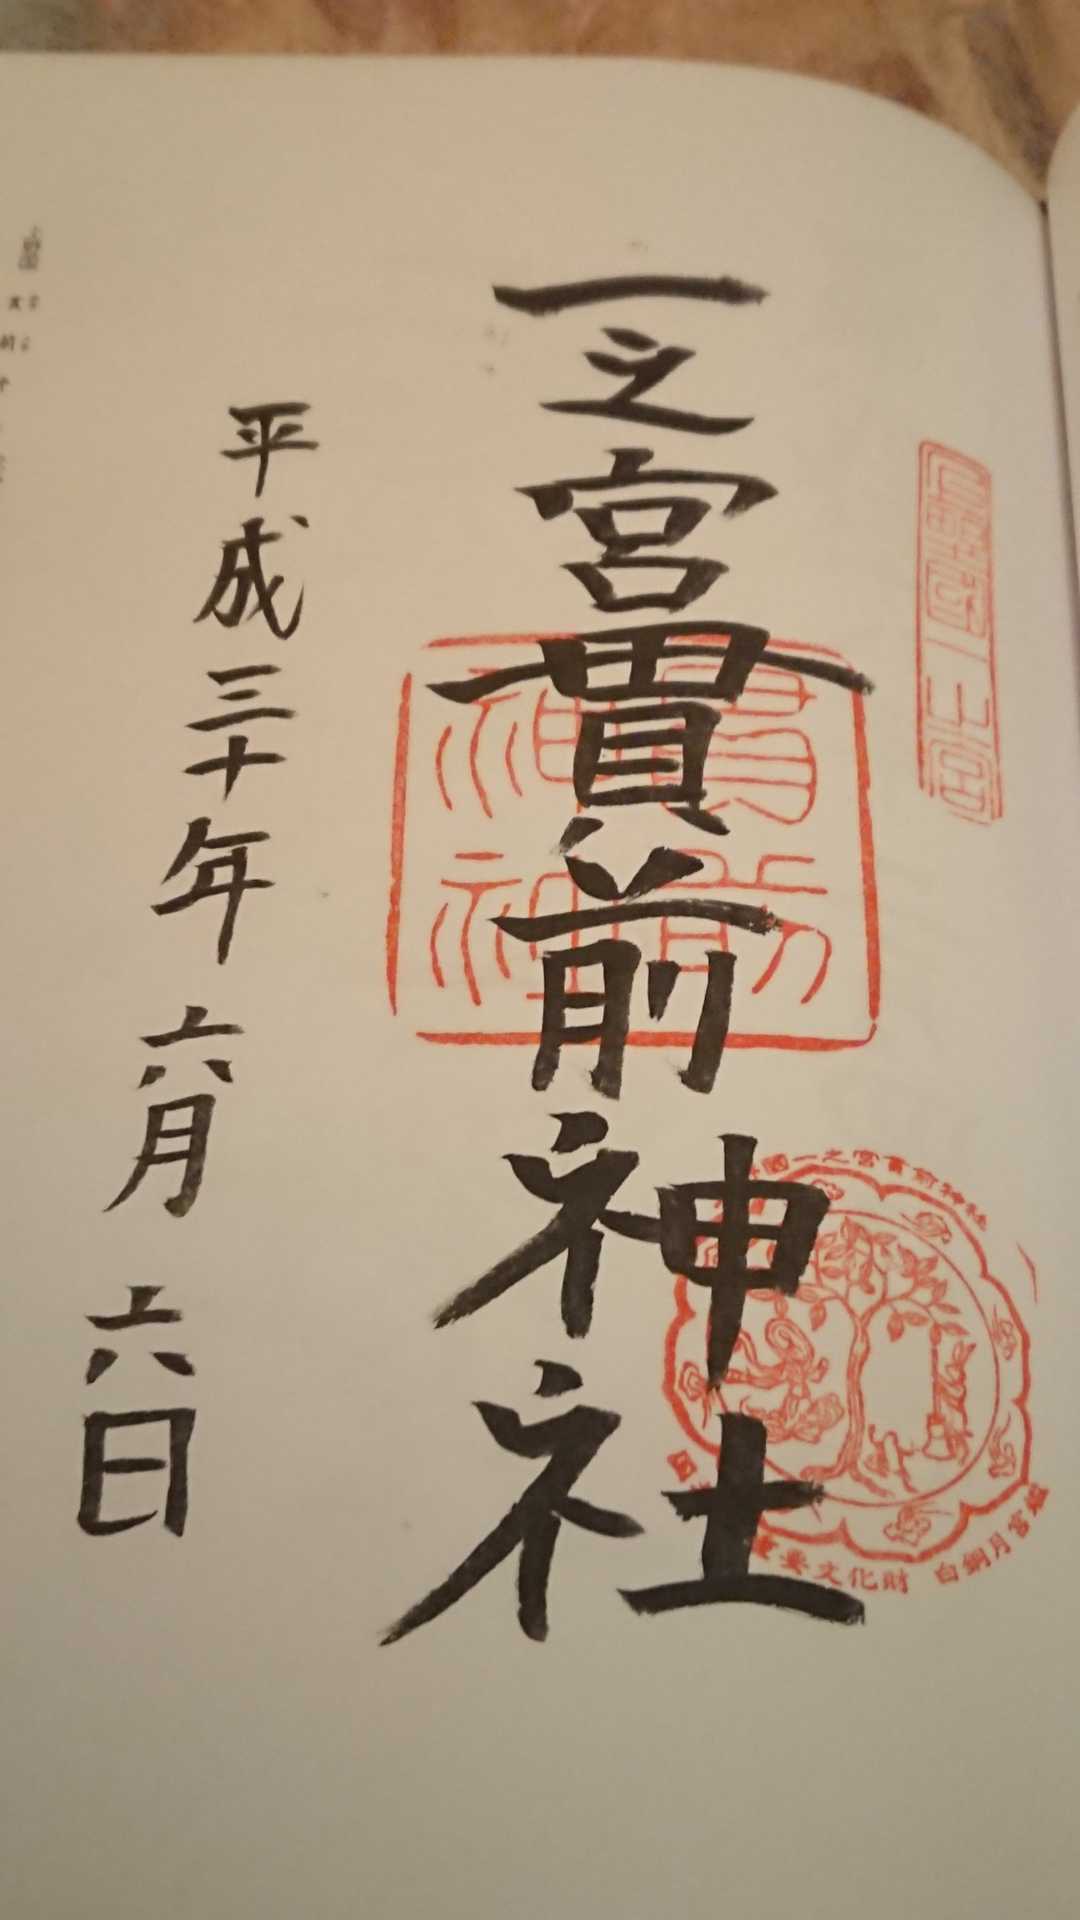 上野國一之宮
一之宮貫前神社
貫前
神社
國一之宮貫前神社
重要文化財 白銅月宮鑑
平成三十年 六月 六日